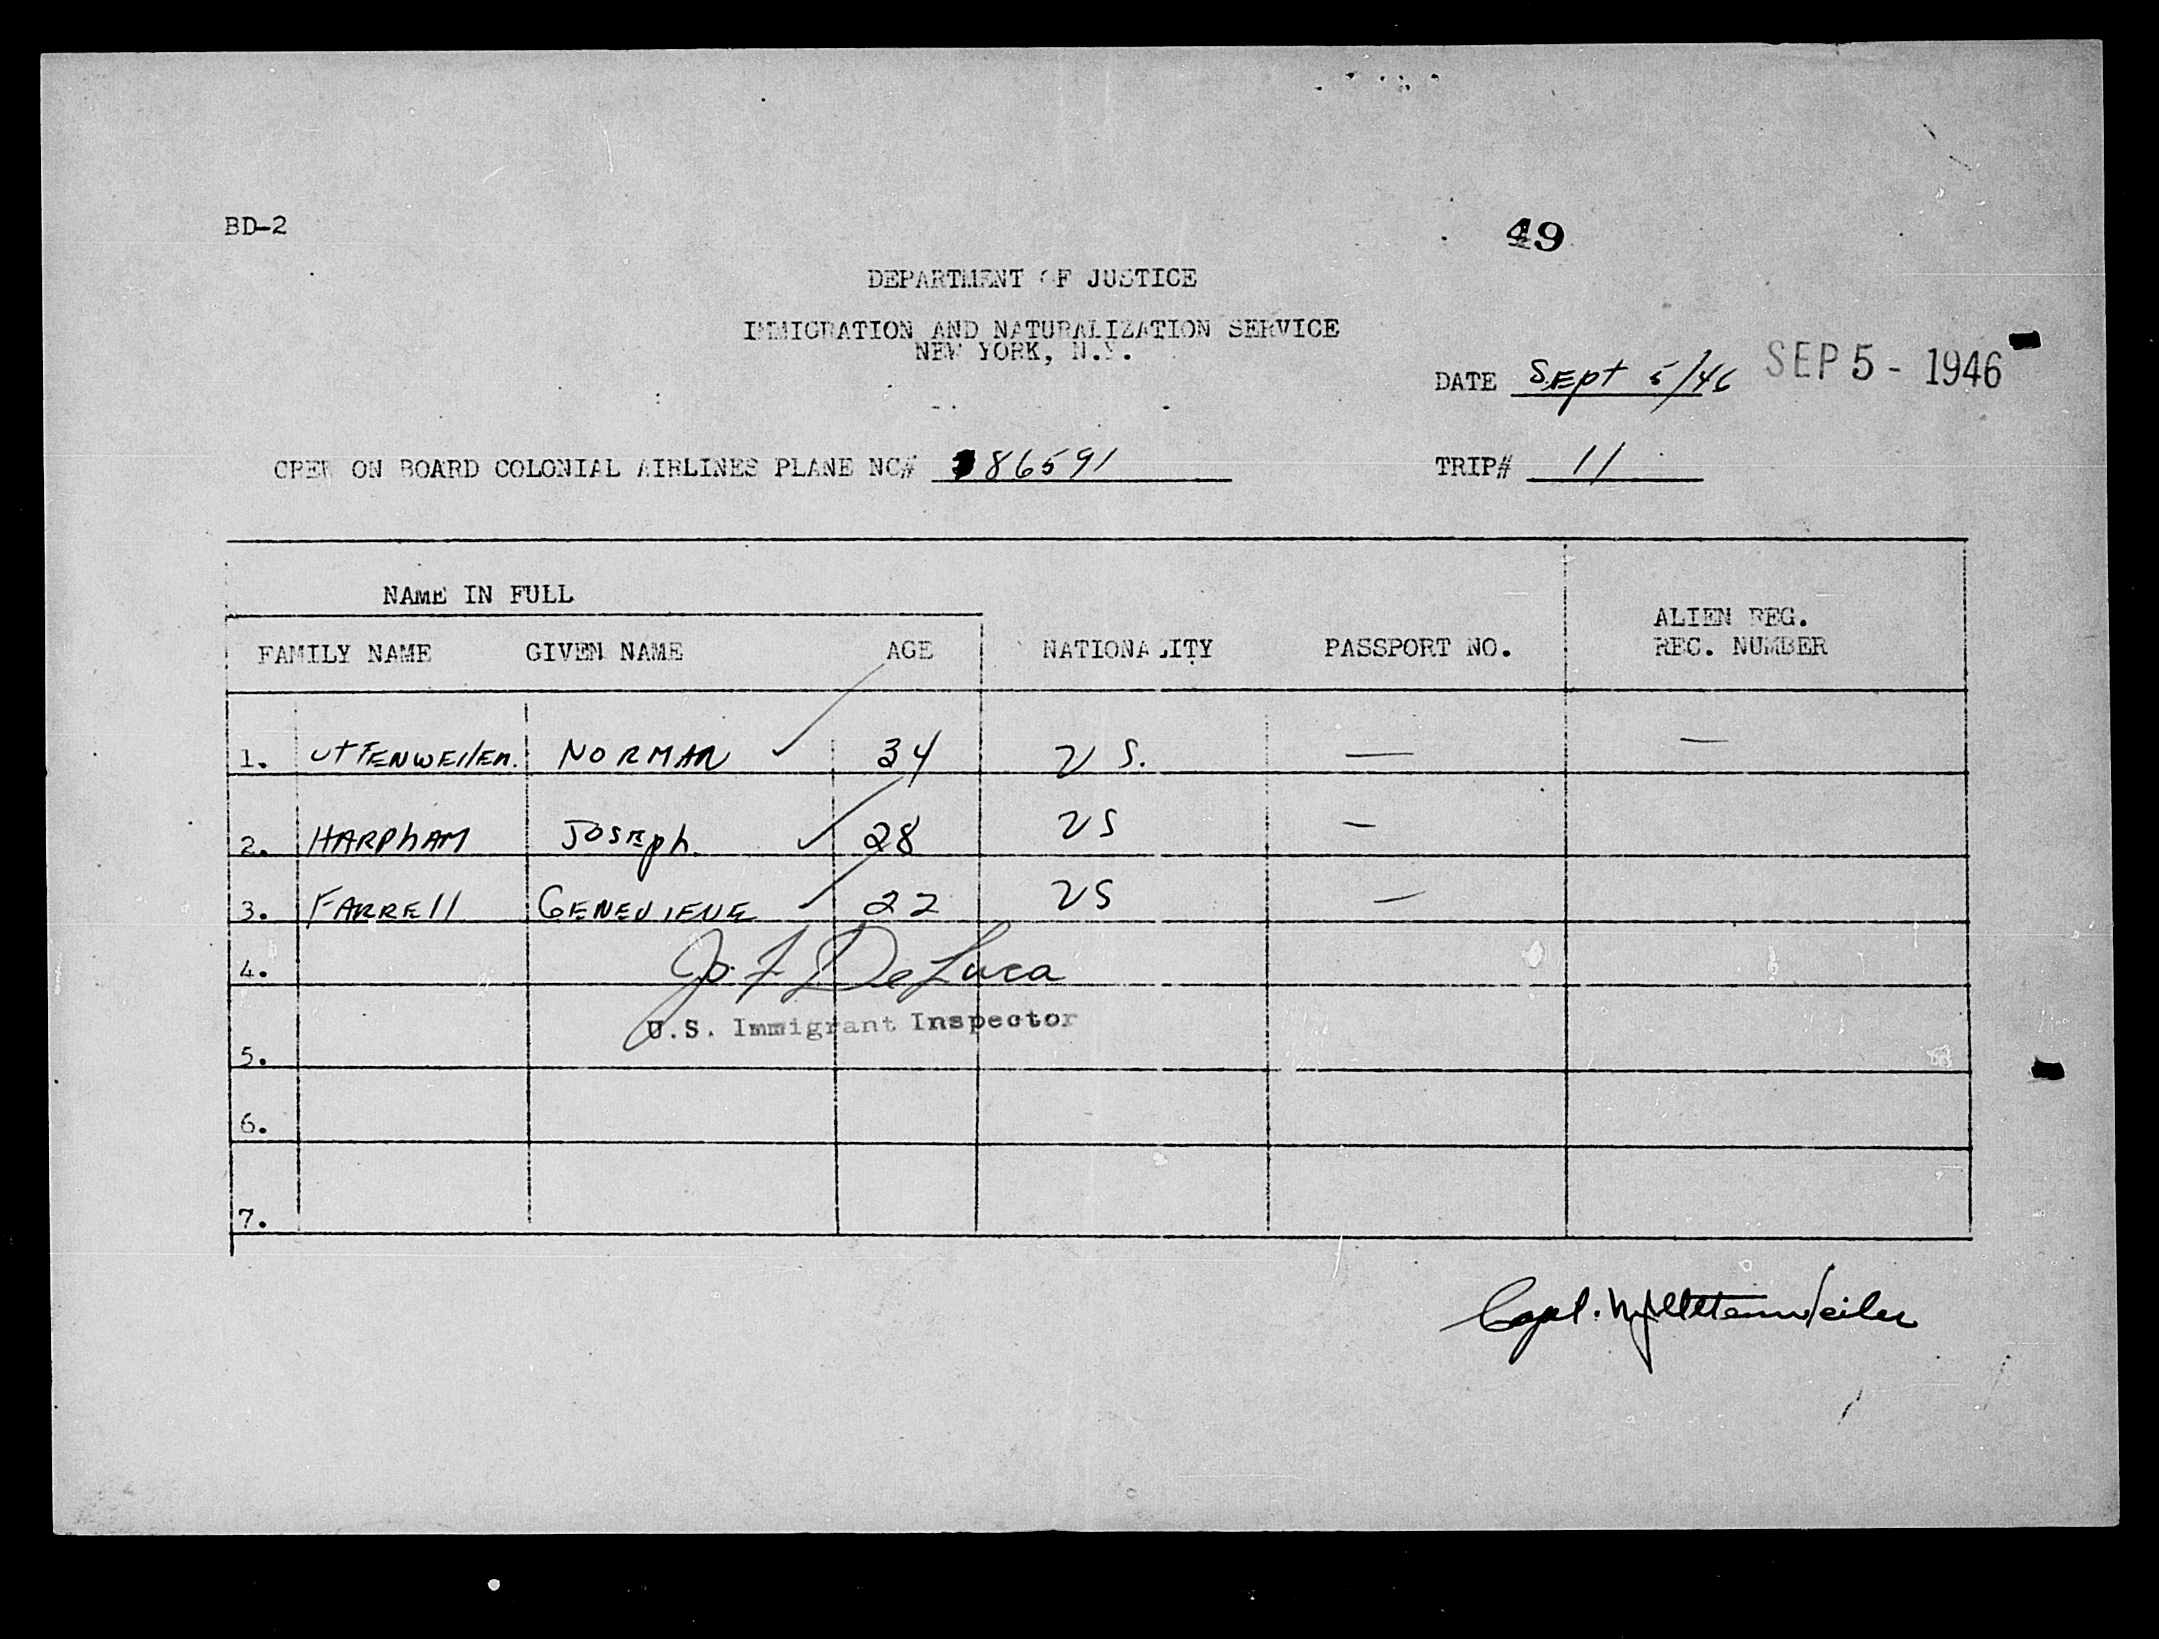 BD-2
49
DEPARTMENT OF JUSTICE
IMMIGRATION AND NATURALIZATION SERVICE
NEW YORK, N.Y.
DATE Sept 5/46 SEP 5 - 1946
CREW ON BOARD COLONIAL AIRLINES PLANE NC# 86591 TRIP# 11
NAME IN FULL
FAMILY NAME GIVEN NAME AGE NATIONALITY PASSPORT NO. ALIEN REG. REC. NUMBER
1. UTTENWEILER. NORMAN ✓ 34 U S. — —
2. HARPHAM JOSEPH. ✓ 28 US —
3. FARRELL GENEVIEVE ✓ 22 US —
4.
Jo. F DeLuca
U.S. Immigrant Inspector
5.
6.
7.
Capt. Uttenweiler